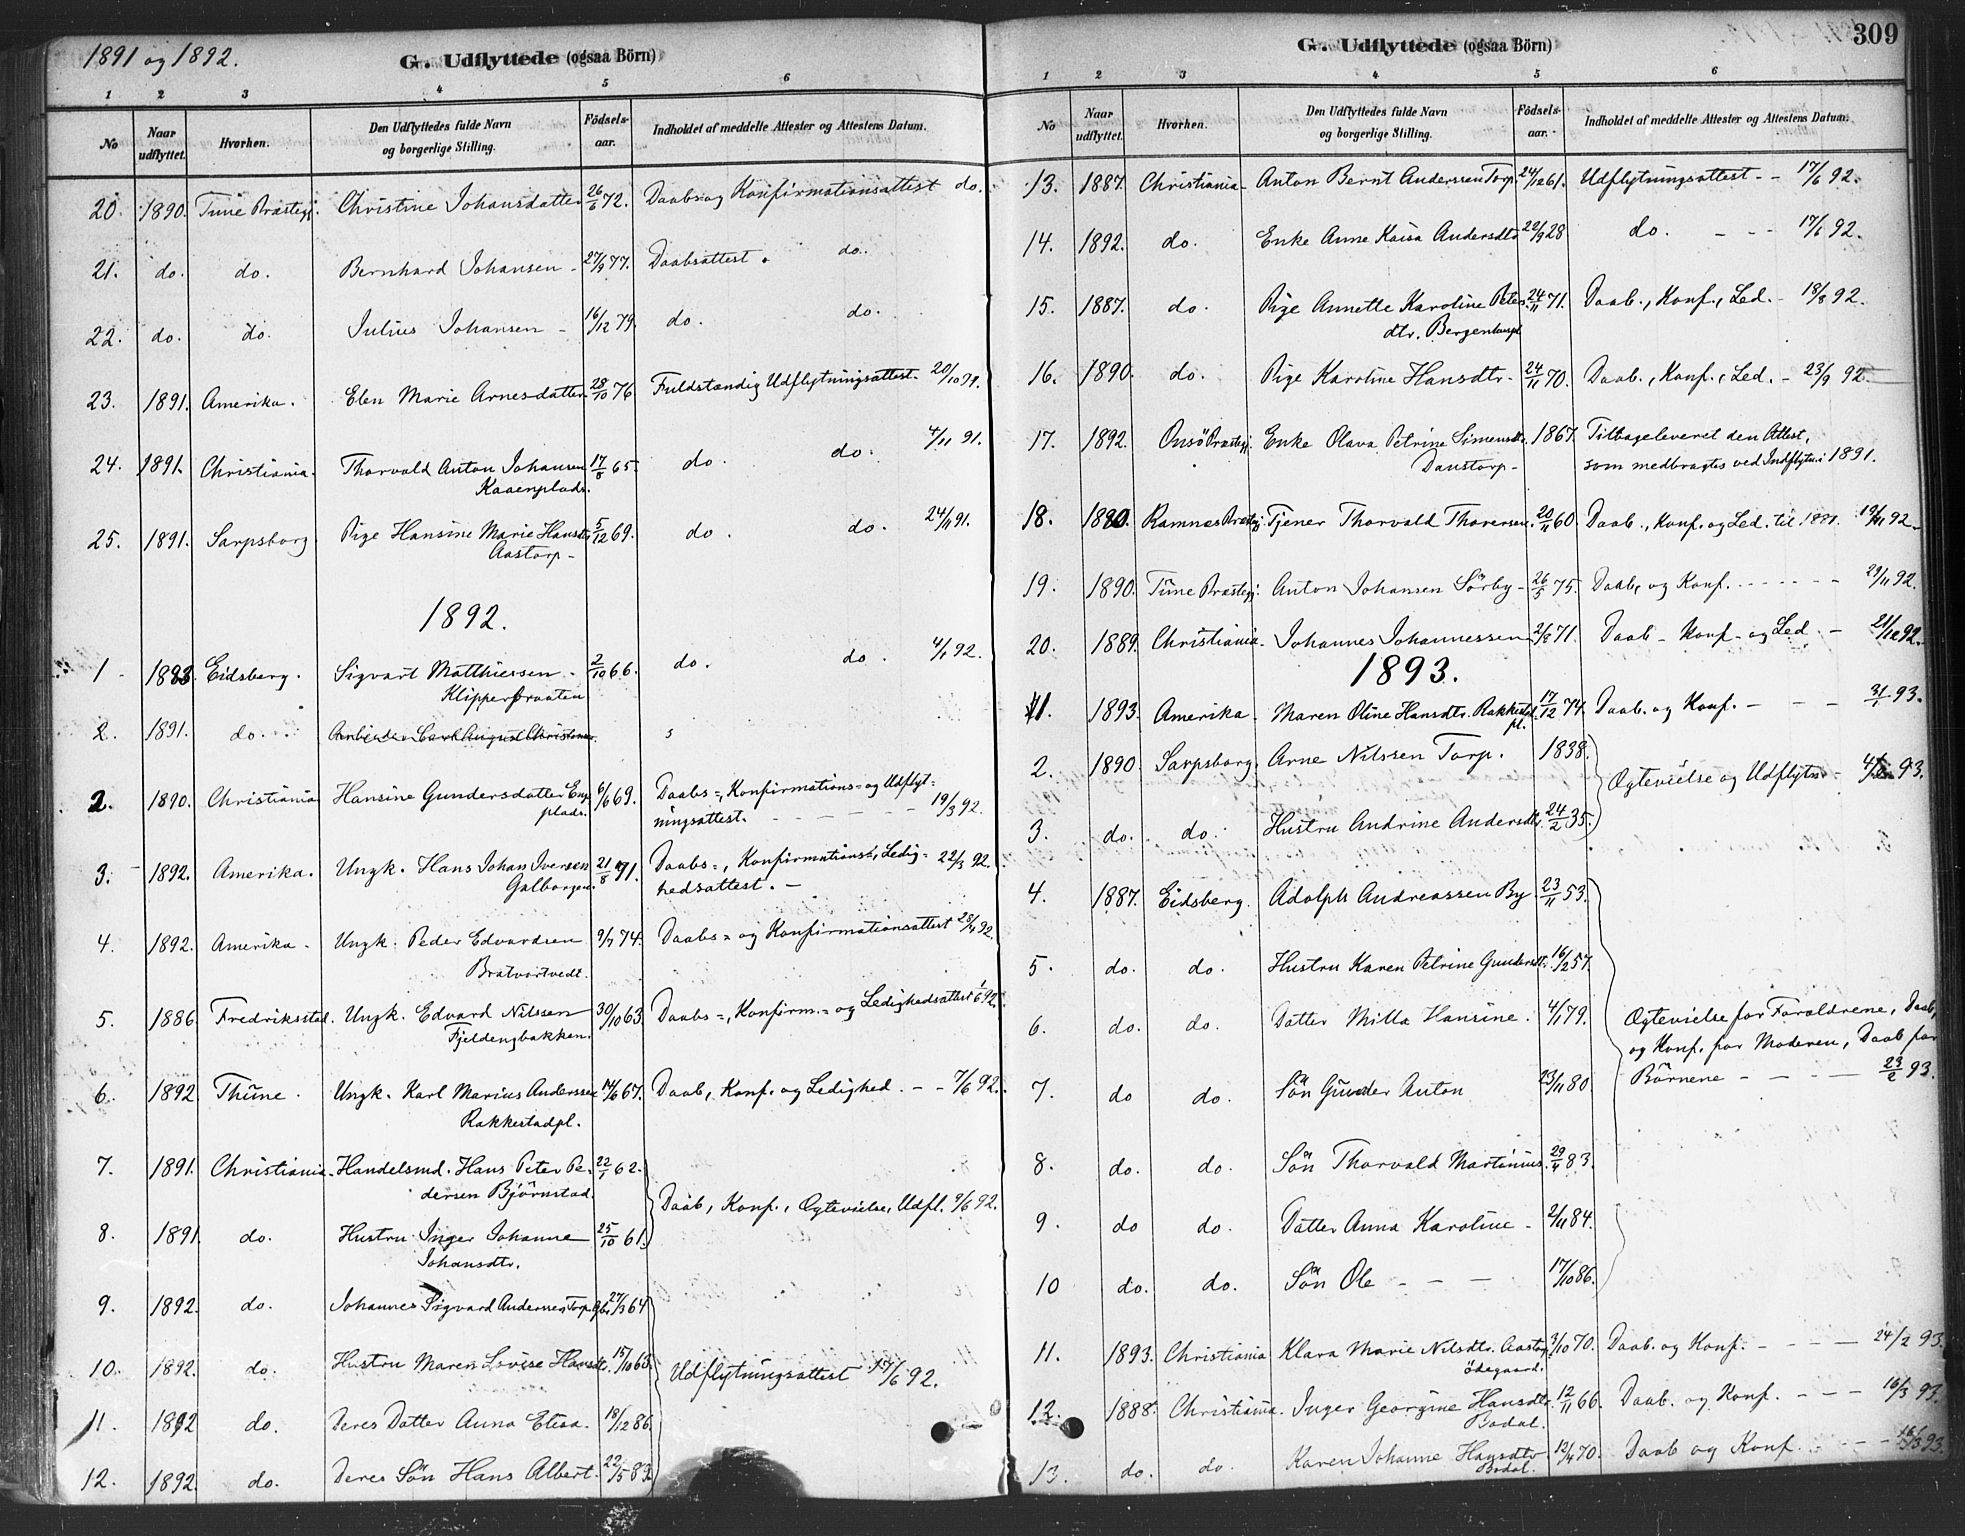 1891 og 1892.
G. Udflyttede (ogsaa Börn)
1 2 3 4 5 6
No Naar udflyttet. Hvorhen. Den Udflyttedes fulde Navn og borgerlige Stilling. Födsels-aar. Indholdet af meddelte Attester og Attestens Datum.
20. 1890. Tune Præstegj. Christine Johansdatter 26/6 72. Daabs og Konfirmationsattest do.
21. do. do. Bernhard Johansen - 27/9 77. Daabsattest. do.
22. do. do. Julius Johansen - 16/12 79. do. do.
23. 1891. Amerika. Elen Marie Arnesdatter 28/10 76 Fuldstændig Udflytningsattest. 20/10 91.
24. 1891. Christiania. Thorvald Anton Johansen 17/8 65. do. do. 4/11 91.
Kaaenplads.
25. 1891. Sarpsborg Pige Hansine Marie Hansdtr. 5/12 69. do. do. 24/11 91.
Aastorp -
1892.
1 - 1883. Eidsberg. Sigvart Matthiesen - 2/10 66. do. do. 4/1 92.
Klipperbraaten
2. 1891. do. Arbeider Carl August Christensen.
2. 1890. Christiania Hansine Gundersdatter Eng 6/6 69. Daabs-, Konfirmations- og Udflyt-
plads. ningsattest. - - - - - 19/3 92.
3. 1892. Amerika. Ungk. Hans Johan Iversen 21/8 71. Daabs-, Konfirmations-, Ledig- 22/3 92.
Galborgen. hedsattest. -
4. 1892. Amerika. Ungk. Peder Edvardsen 9/7 74. Daabs- og Konfirmationsattest 28/4 92.
Bratvortvedt.
5. 1886 Fredriksstad. Ungk. Edvard Nilssen 30/10 63. Daabs-, Konfirm.- og Ledighedsattest 1/6 92.
Fjeldengbakken.
6. 1892 Thune. Ungk. Karl Marius Anderssen 14/6 67. Daab, Konf. og Ledighed. - - 7/6 92.
Rakkestadpl.
7. 1891. Christiania. Handelsmd. Hans Peter Pe- 22/1 62.
dersen Björnstad. Daab, Konf., Ægtevielse, Udfl. 9/6 92.
8. 1891. do. Hustru Inger Johanne 25/10 61.
Johansdtr.
9. 1892. do. Johannes Sigvard Andersen Torp 27/3 64
10. 1892. do. Hustru Maren Lovise Hansdtr. 15/10 65. Udflytningsattest 17/6 92.
11. 1892 do. Deres Datter Anna Elisa. 18/12 86.
12. 1892. do. Deres Sön Hans Albert. 22/5 83.
309
G. Udflyttede (ogsaa Börn)
1 2 3 4 5 6
No Naar udflyttet. Hvorhen. Den Udflyttedes fulde Navn og borgerlige Stilling. Födsels-aar. Indholdet af meddelte Attester og Attestens Datum.
13. 1887. Christiania. Anton Bernt Anderssen Torp. 24/12 61. Udflytningsattest - - 17/6 92.
14. 1892. do. Enke Anne Kaisa Andersdtr 22/9 28 do. - - - 17/6 92.
15. 1887. do. Pige Annette Karoline Peters 24/11 71. Daab., Konf., Led. - 18/8 92.
dtr. Bergenhaugt
16. 1890. do. Pige Karoline Hansdtr. 24/11 70. Daab., Konf., Led. - 23/9 92.
17. 1892. Onsö Præstegj. Enke Olava Petrine Simensdtr. 1867. Tilbageleveret den Attest,
Danstorp - som medbragtes ved Indflytn. i 1891.
18. 1890. Ramnes Præstegj. Tjener Thorvald Thorersen. 20/11 60. Daab., Konf. og Led. til 1881. 19/11 92.
19. 1890. Tune Præstegj. Anton Johansen Sörby - 26/5 75. Daab, og Konf. - - - - - - 29/11 92.
20. 1889. Christiania. Johannes Johannessen 2/8 71. Daab - Konf - og Led - 21/12 92.
1893.
1. 1893. Amerika. Maren Oline Hansdtr. Rakkestad 17/12 74. Daab. og Konf. - - - 31/1 93.
pl.
2. 1890. Sarpsborg. Arne Nilssen Torp. 1838.
Ægtevielse og Udflytn. - 4/2 93.
3. do. do. Hustru Andrine Andersdtr. 24/2 35.
4. 1887. Eidsberg. Adolph Andreassen By 23/11 53.
5. do. do. Hustru Karen Petrine Gundersdtr. 16/2 57.
6. do. do. Datter Milla Hansine. 4/1 79. Ægtevielse for Forældrene, Daab,
og Konf. for Moderen, Daab for
7. do do. Sön Gunder Anton 23/11 80 Börnene - - - - 23/2 93.
8. do. do. Sön Thorvald Martinius. 29/4 83.
9. do do. Datter Anna Karoline - 2/11 84.
10 do. do. Sön Ole - - - 17/10 86.
11. 1893. Christiania Klara Marie Nilsdtr. Aastorp 3/10 70. Daab. og Konf. - - - - 24/2 93.
ödegaard.
12. 1888. Christiania. Inger Georgine Hansdtr. 12/11 66. Daab. og Konf. - - - 16/3 93.
Bodal.
13. do. do. Karen Johanne Hansdtr 12/4 70. Daab og Konf. - - - 16/3 93.
Bodal.